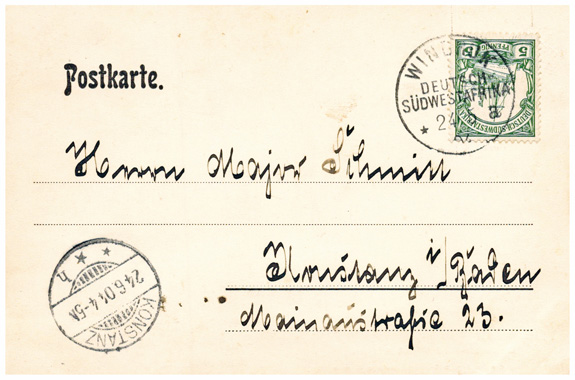 Postkarte.
WINDHUK
DEUTSCH-
SÜDWESTAFRIKA
a
* 24
5 PFENNIG 5
DEUTSCH-SÜDWESTAFRIKA
Herrn Major Schmitt
Konstanz i/Baden
Mainaustraße 23.
* * h
24.6.04.4-5N
KONSTANZ